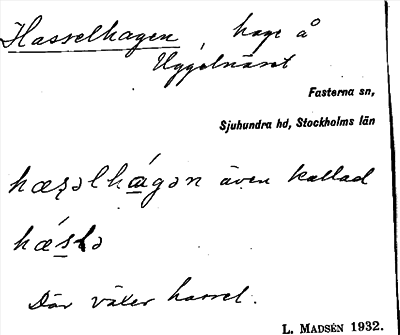 Hasselhagen, hage å
Uggelnäset
Fasterna sn,
Sjuhundra hd, Stockholms län
hæʂəlhágən även kallad
hǽslə
Där växer hassel.
L. MADSÉN 1932.